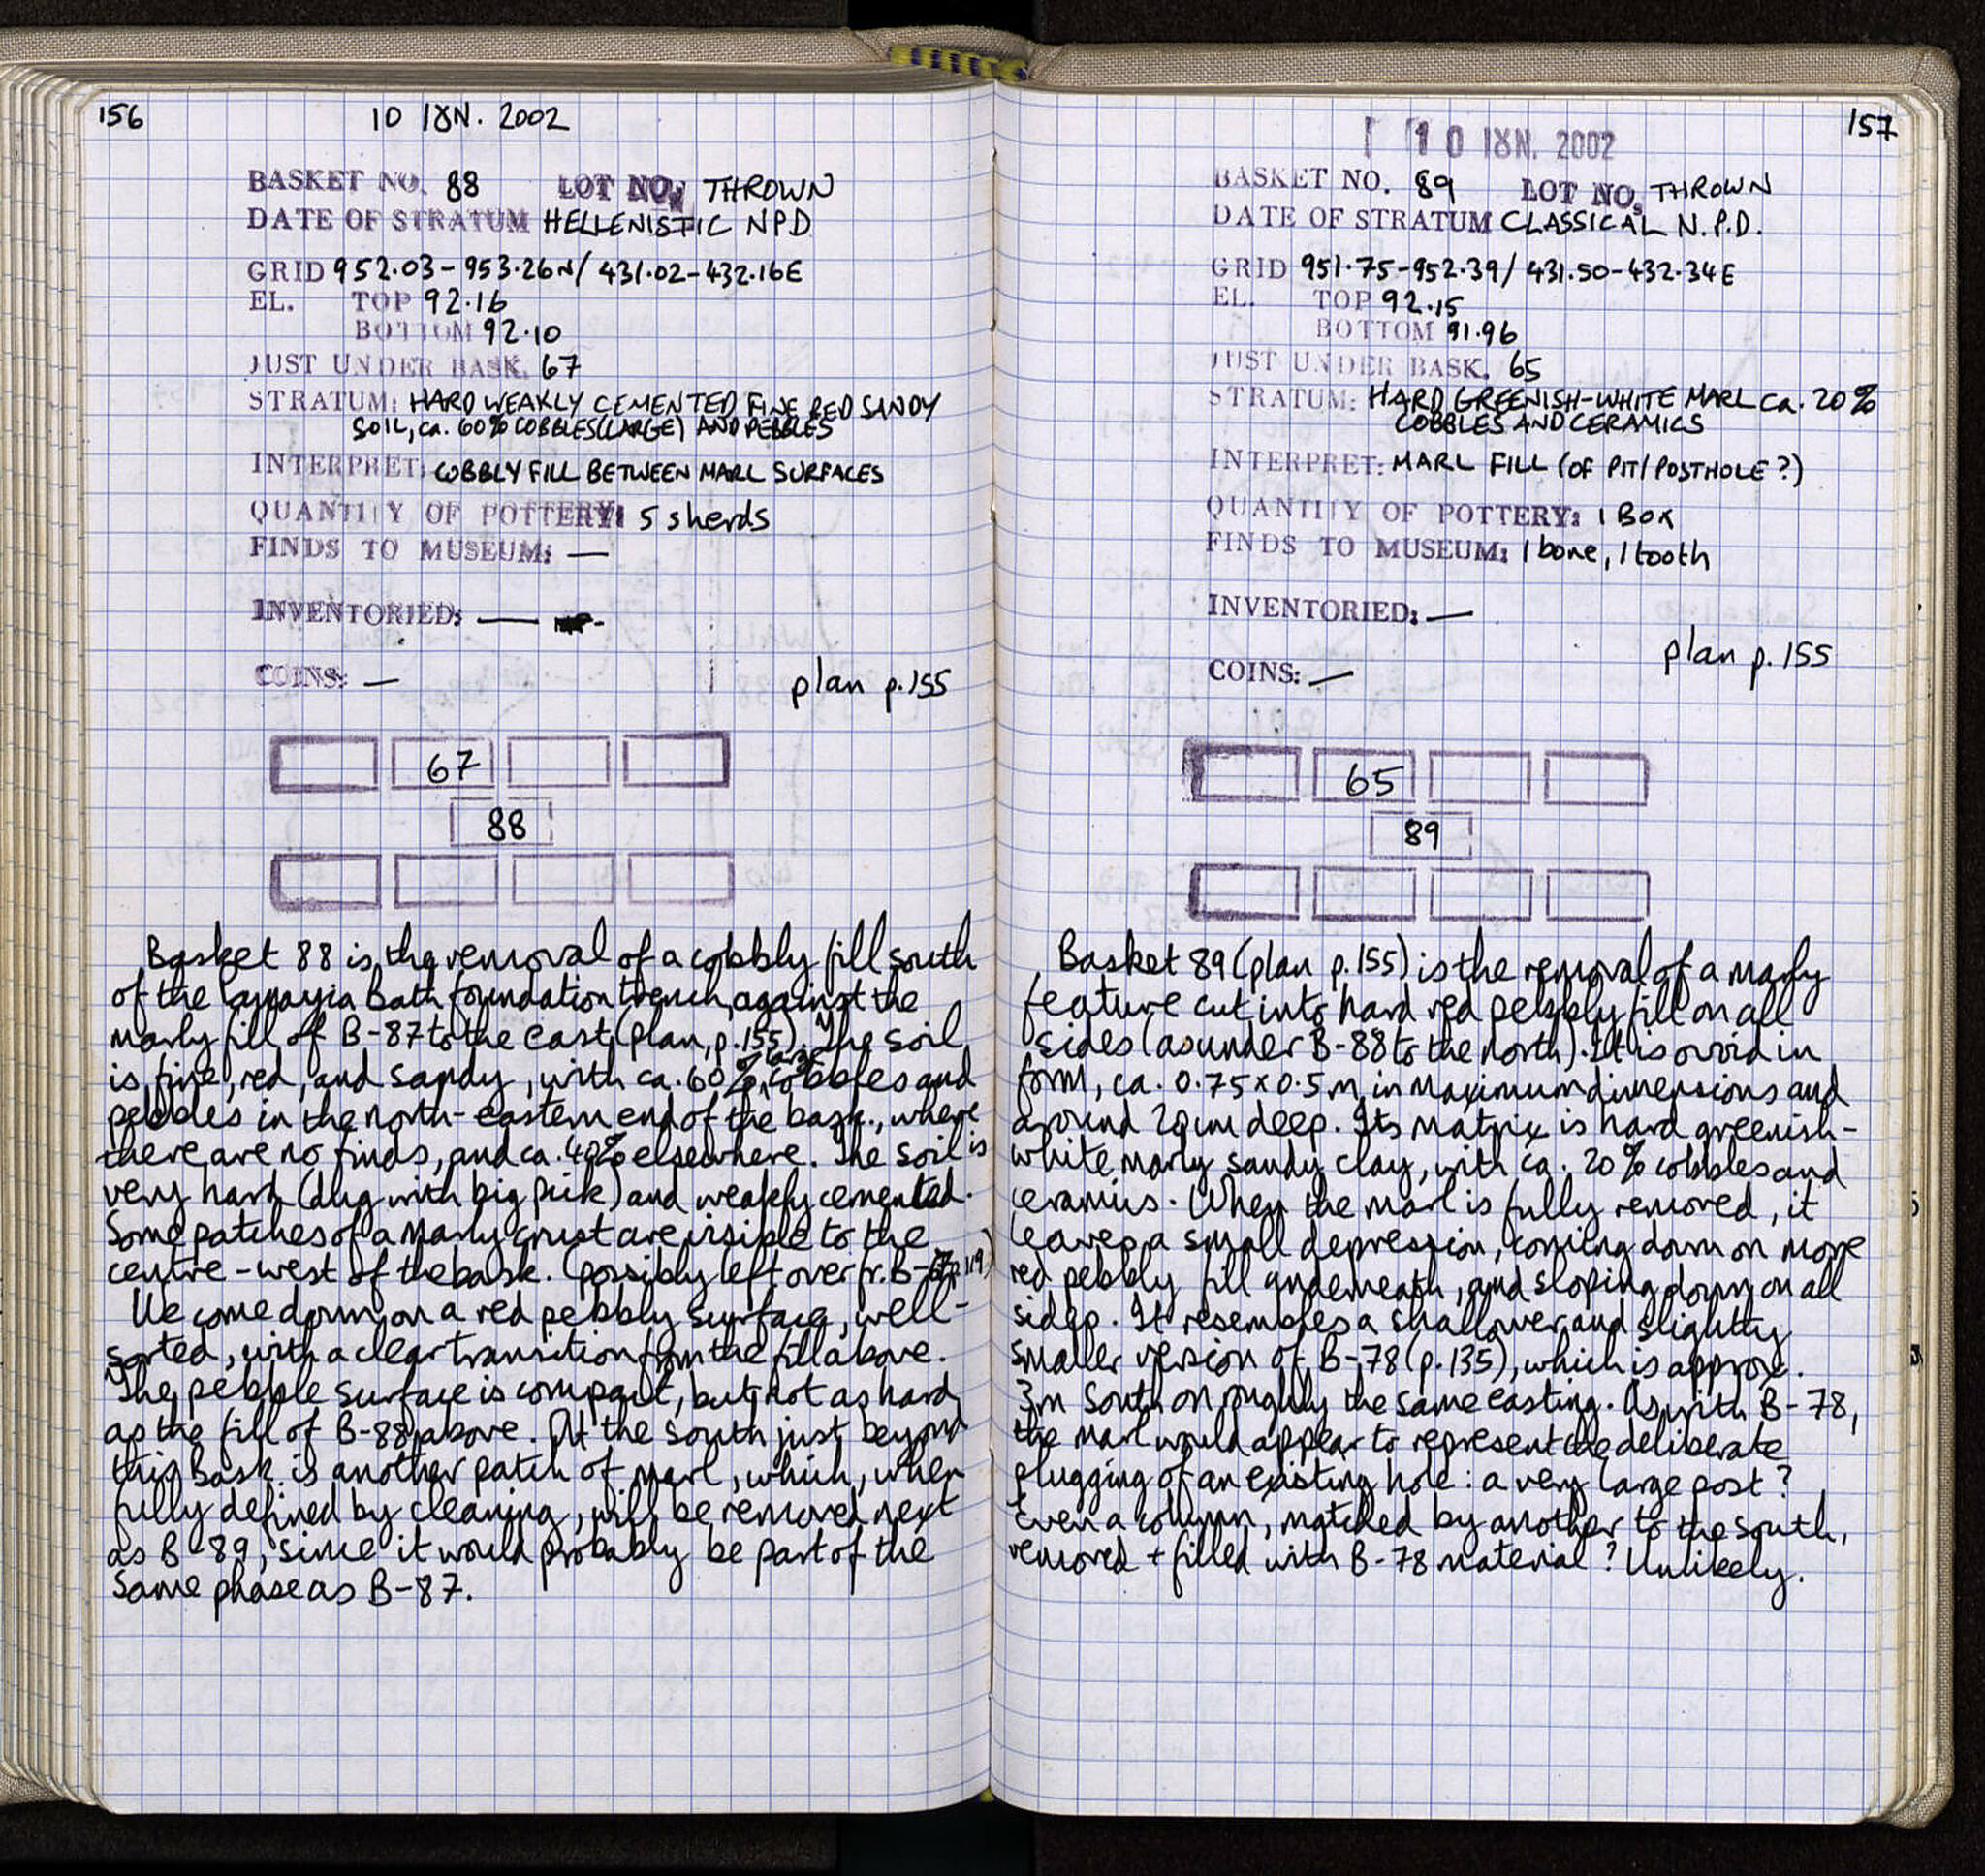 156
10 ΙȢΝ. 2002
BASKET NO. 88 LOT NO. THROWN
DATE OF STRATUM HELLENISTIC NPD
GRID 952.03-953.26N/431.02-432.16E
EL. TOP 92.16
BOTTOM 92.10
JUST UNDER BASK. 67
STRATUM: HARD WEAKLY CEMENTED FINE RED SANDY
SOIL, ca. 60% COBBLES (LARGE) AND PEBBLES
INTERPRET: COBBLY FILL BETWEEN MARL SURFACES
QUANTITY OF POTTERY: 5 sherds
FINDS TO MUSEUM: —
INVENTORIED: —
COINS: —
plan p.155
67
88
Basket 88 is the removal of a cobbly fill south
of the Bath foundation trench, against the
marly fill of B-87 to the east (plan, p.155). The soil
is fine, red, and sandy, with ca. 60% large cobbles and
pebbles in the north-eastern end of the bask., where
there are no finds, and ca. 40% elsewhere. The soil is
very hard (dug with big pick) and weakly cemented.
Some patches of a marly crust are visible to the
centre-west of the bask. (possibly left over fr. B-67 p.119)
We come down on a red pebbly surface, well-
sorted, with a clear transition from the fill above.
The pebble surface is compact, but not as hard
as the fill of B-88 above. At the south just beyond
this bask. is another patch of marl, which, when
fully defined by cleaning, will be removed next
as B-89, since it would probably be part of the
same phase as B-87.
157
10 ΙȢΝ. 2002
BASKET NO. 89 LOT NO. THROWN
DATE OF STRATUM CLASSICAL N.P.D.
GRID 951.75-952.39/431.50-432.34E
EL. TOP 92.15
BOTTOM 91.96
JUST UNDER BASK. 65
STRATUM: HARD GREENISH-WHITE MARL ca. 20%
COBBLES AND CERAMICS
INTERPRET: MARL FILL (OF PIT/POSTHOLE?)
QUANTITY OF POTTERY: 1 BOX
FINDS TO MUSEUM: 1 bone, 1 tooth
INVENTORIED: —
plan p.155
COINS: —
65
89
Basket 89 (plan p.155) is the removal of a marly
feature cut into hard red pebbly fill on all
sides (as under B-88 to the north). It is ovoid in
form, ca. 0.75x0.5m in maximum dimensions and
around 20cm deep. Its matrix is hard greenish-
white marly sandy clay, with ca. 20% cobbles and
ceramics. When the marl is fully removed, it
leaves a small depression, coming down on more
red pebbly fill underneath, and sloping down on all
sides. It resembles a shallower and slightly
smaller version of B-78 (p.135), which is approx.
3m South on roughly the same easting. As with B-78,
the marl would appear to represent the deliberate
plugging of an existing hole: a very large post?
Even a column, matched by another to the south,
removed + filled with B-78 material? Unlikely.